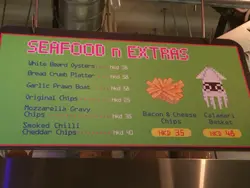 SEAFOOD n EXTRAS
White Board Oysters HKD 38
Bread Crumb Platter HKD 58
Garlic Prawn Boat HKD 58
Original Chips HKD
Mozzarella Gravy
Chips HKD 38
Smoked Chilli
Cheddar Chips HKD 40
Bacon & Cheese
Chips
HKD 35
Calamari
Basket
HKD 48